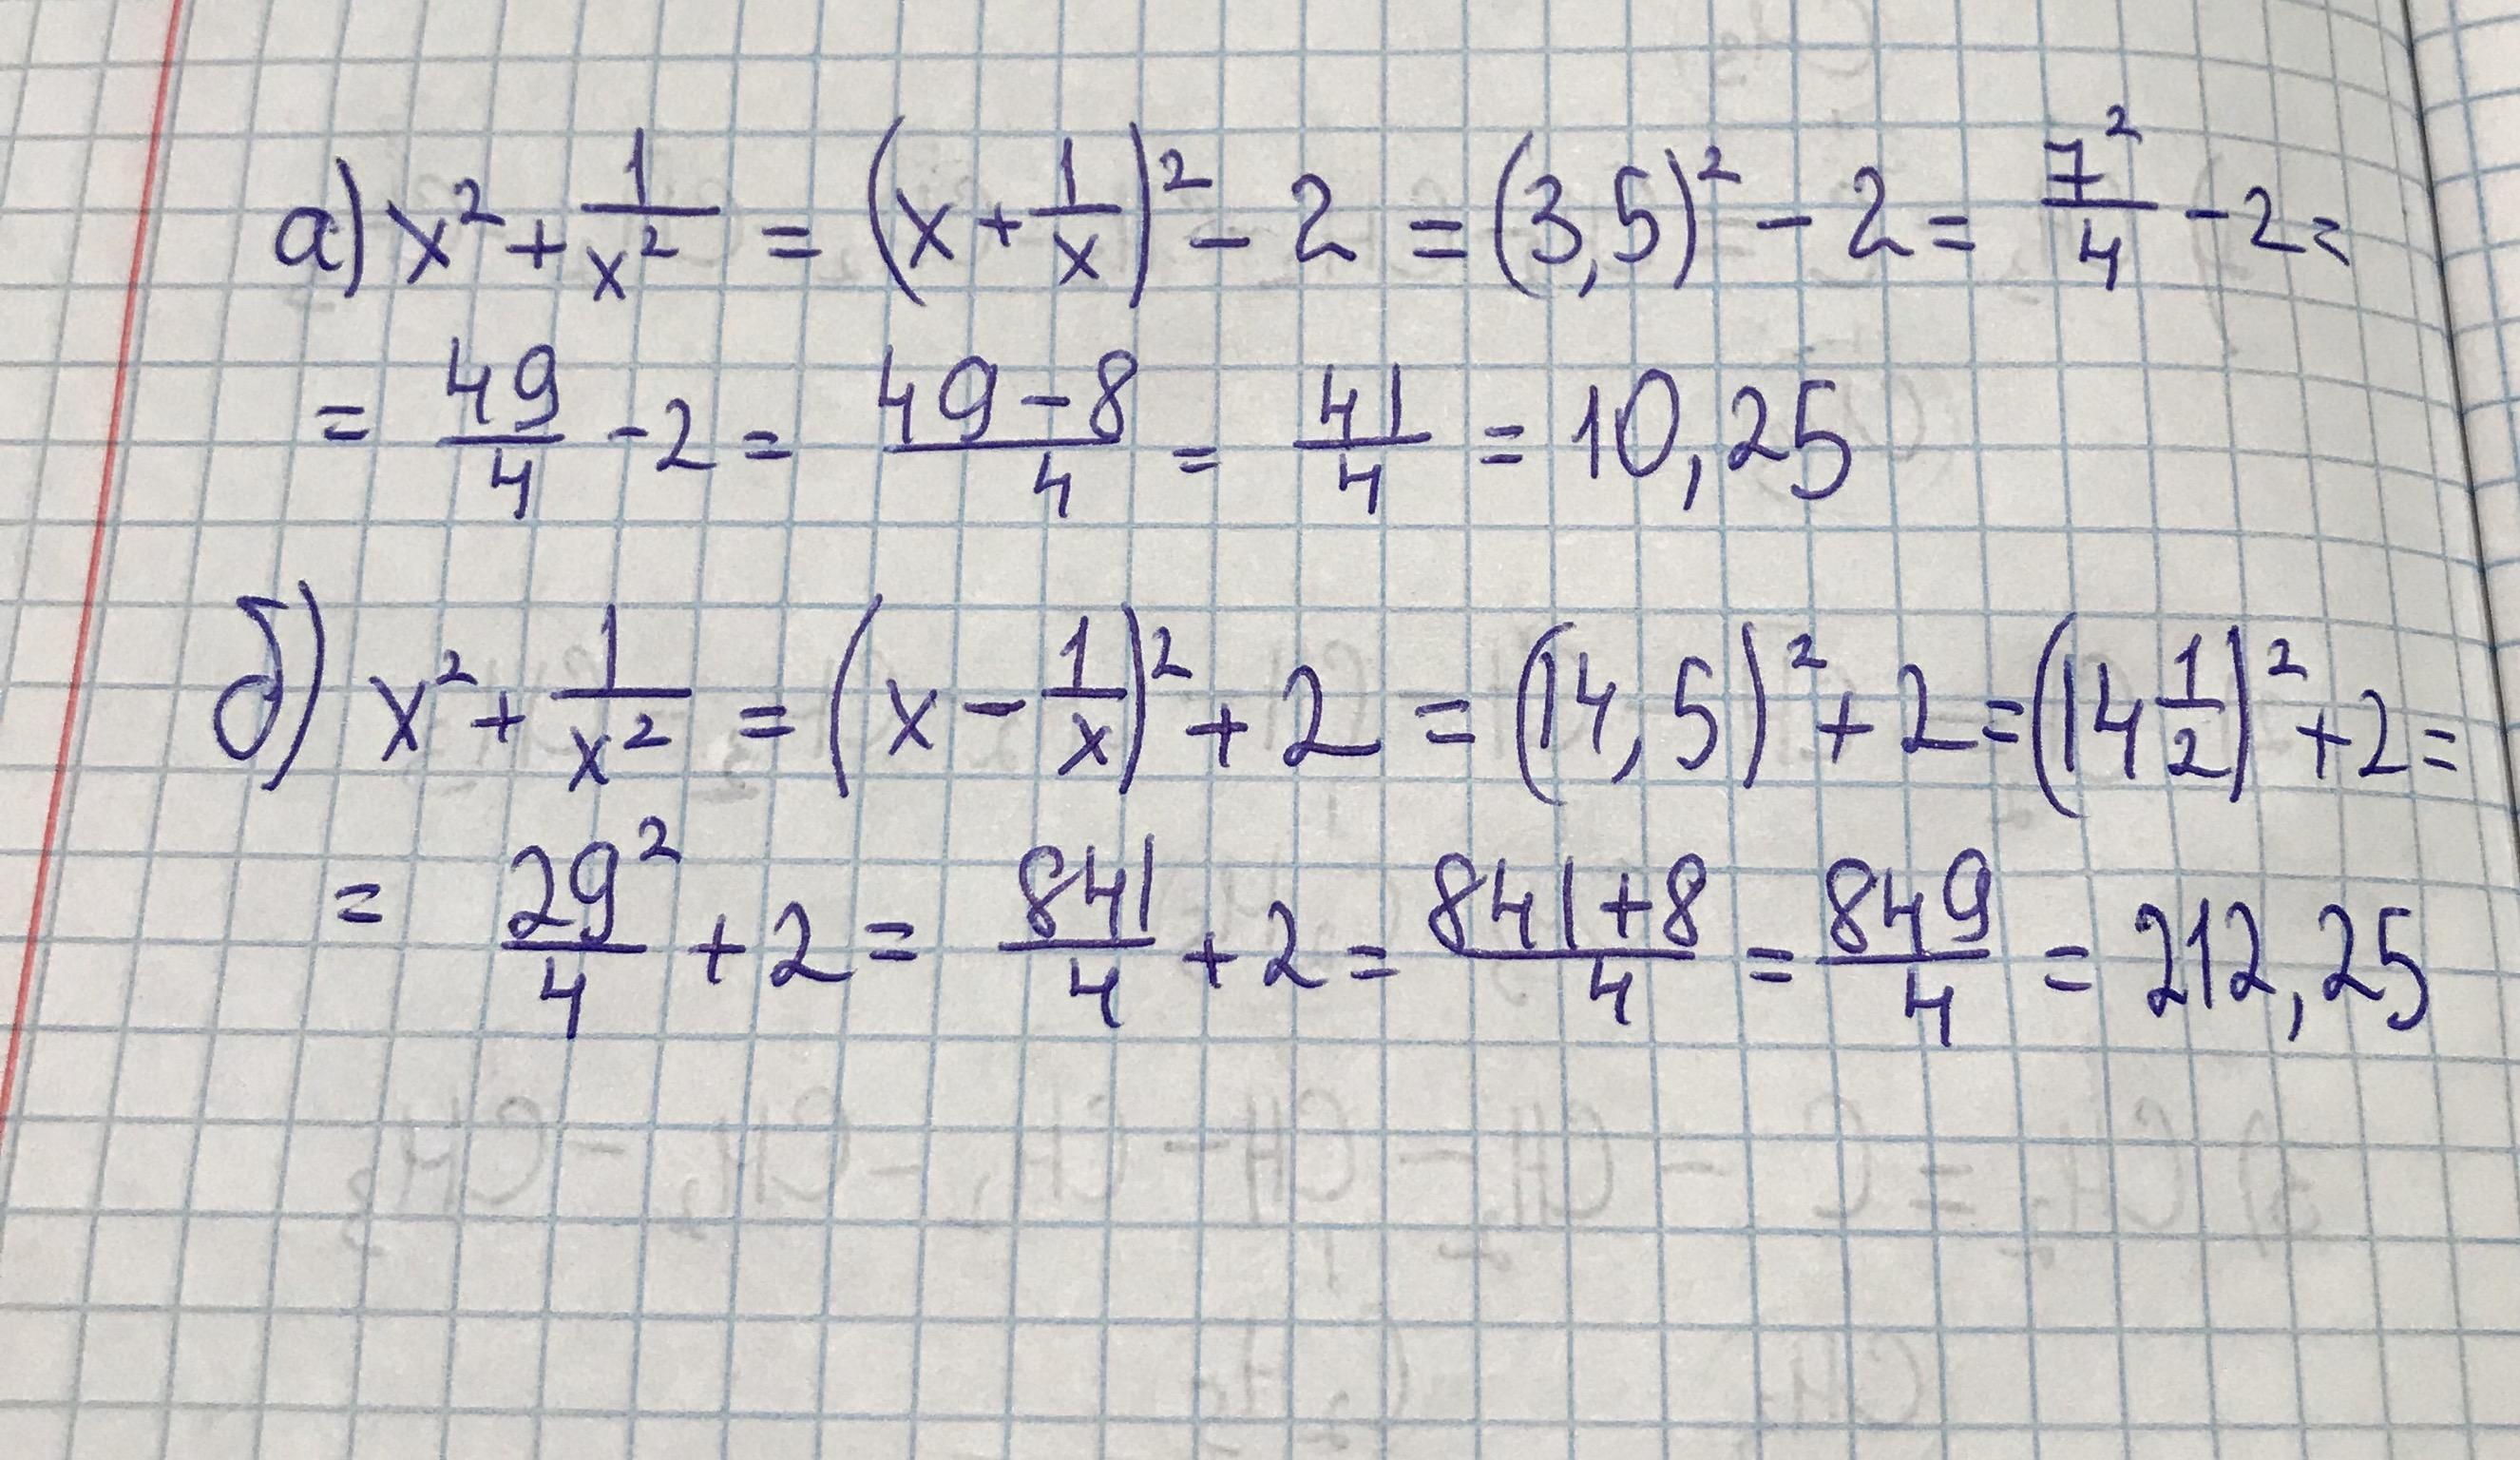 а) x² + 1/x² = (x + 1/x)² - 2 = (3,5)² - 2 = 7²/4 - 2 =
= 49/4 - 2 = (49 - 8)/4 = 41/4 = 10,25
б) x² + 1/x² = (x - 1/x)² + 2 = (14,5)² + 2 = (14 1/2)² + 2 =
= 29²/4 + 2 = 841/4 + 2 = (841 + 8)/4 = 849/4 = 212,25